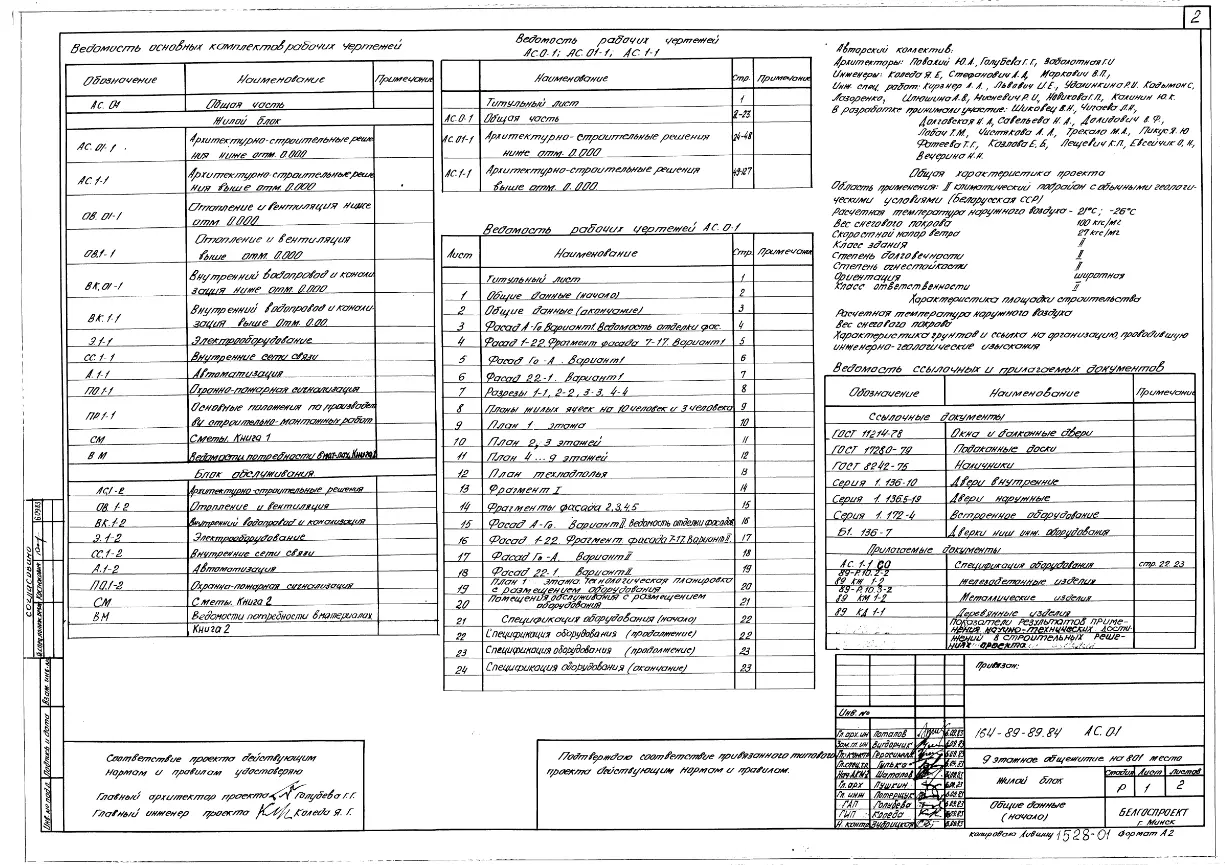 2
Ведомость основных комплектов рабочих чертежей
Обозначение Наименование Примечание
АС.01 Общая часть
Жилой блок
АС.01-1 Архитектурно-строительные реше-
ния ниже отм. 0.000
АС.1-1 Архитектурно-строительные реше-
ния выше отм. 0.000
ОВ.01-1 Отопление и вентиляция ниже
отм. 0.000
ОВ.1-1 Отопление и вентиляция
выше отм. 0.000
ВК.01-1 Внутренний водопровод и канали-
зация ниже отм. 0.000
ВК.1-1 Внутренний водопровод и канали-
зация выше отм. 0.00
Э.1-1 Электрооборудование
СС.1-1 Внутренние сети связи
А.1-1 Автоматизация
ПО.1-1 Охранно-пожарная сигнализация
ПР.1-1 Основные положения по производст
ву строительно-монтажных работ
СМ Сметы. Книга 1
ВМ Ведомости потребности в мат-лах. Книга 1
Блок обслуживания
АС1-2 Архитектурно-строительные решения
ОВ.1-2 Отопление и вентиляция
ВК.1-2 Внутренний водопровод и канализация
Э.1-2 Электрооборудование
СС.1-2 Внутренние сети связи
А.1-2 Автоматизация
ПО.1-2 Охранно-пожарная сигнализация
СМ Сметы. Книга 2
ВМ Ведомости потребности в материалах
Книга 2
Ведомость рабочих чертежей
АС.0-1; АС.01-1, АС.1-1
Наименование Стр. Примечание
Титульный лист 1
АС.0-1 Общая часть 2-23
АС.01-1 Архитектурно-строительные решения 24-48
ниже отм. 0.000
АС.1-1 Архитектурно-строительные решения 49-127
выше отм. 0.000
Ведомость рабочих чертежей АС.0-1
Лист Наименование Стр. Примечание
Титульный лист 1
1 Общие данные (начало) 2
2 Общие данные (окончание) 3
3 Фасад А-Го Вариант I. Ведомость отделки фас. 4
4 Фасад 1-22 Фрагмент фасада 7-17. Вариант I 5
5 Фасад Го-А. Вариант I 6
6 Фасад 22-1. Вариант I 7
7 Разрезы 1-1, 2-2, 3-3, 4-4 8
8 Планы жилых ячеек на 10 человек и 3 человека 9
9 План 1 этажа 10
10 План 2, 3 этажей 11
11 План 4...9 этажей 12
12 План техподполья 13
13 Фрагмент I 14
14 Фрагменты фасада 2,3,4,5 15
15 Фасад А-Го. Вариант II. Ведомость отделки фасадов 16
16 Фасад 1-22. Фрагмент фасада 7-17. Вариант II 17
17 Фасад Го-А. Вариант II 18
18 Фасад 22-1. Вариант II 19
19 План 1 этажа. Технологическая планировка
с размещением оборудования 20
20 Помещения обслуживания с размещением
оборудования 21
21 Спецификация оборудования (начало) 22
22 Спецификация оборудования (продолжение) 22
23 Спецификация оборудования (продолжение) 23
24 Спецификация оборудования (окончание) 23
Авторский коллектив:
Архитекторы: Повалий Ю.А., Голубева Г.Г., Заболотная Г.И
Инженеры: Коледа Я.Г., Стефанович А.А, Маркович В.П.,
Инж. спец. работ: Кирзнер Л.Л., Львович И.Е., Удалинкина Р.И. Кодымос,
Лазаренко, Илюшина А.В, Мисневич Р.И, Новикова Г.П., Калинин Ю.К.
В разработке принимали участие: Шиковец В.Н, Чигаева Л.И,
Долговская Н.А, Савельева Н.А., Долидович В.Ф.,
Лобач Т.М., Чистякова А.А, Трекало М.А., Пикус Я.Ю
Фатеева Т.Г., Козлова Е.Б, Лещевич К.П, Евсейчик О.Н,
Вечерина Н.Н.
Общая характеристика проекта
Область применения: II климатический подрайон с обычными геологи-
ческими условиями (Белорусская ССР)
Расчетная температура наружного воздуха - 21°С; -26°С
Вес снегового покрова 100 кгс/м2
Скоростной напор ветра 27 кгс/м2
Класс здания II
Степень долговечности II
Степень огнестойкости II
Ориентация широтная
Класс ответственности II
Характеристика площадки строительства
Расчетная температура наружного воздуха
Вес снегового покрова
Характеристика грунтов и ссылка на организацию, проводившую
инженерно-геологические изыскания
Ведомость ссылочных и прилагаемых документов
Обозначение Наименование Примечание
Ссылочные документы
ГОСТ 11214-78 Окна и балконные двери
ГОСТ 17280-79 Подоконные доски
ГОСТ 8242-75 Наличники
Серия 1.136-10 Двери внутренние
Серия 1.136.5-19 Двери наружные
Серия 1.172-4 Встроенное оборудование
Б1.136-7 Дверки ниш инж. оборудования
Прилагаемые документы
АС.1-1 СО Спецификация оборудования стр. 22, 23
89-Р.10.2-2
89 КЖ 1-2 Железобетонные изделия
89-Р.10.3-2
89 КМ 1-2 Металлические изделия
89 КД 1-1 Деревянные изделия
Показатели результатов приме-
нения научно-технических дости-
жений в строительных реше-
ниях проекта
Соответствие проекта действующим
нормам и правилам удостоверяю
Главный архитектор проекта Голубева Г.Г.
Главный инженер проекта Коледа Я.Г.
Подтверждаю соответствие привязанного типового
проекта действующим нормам и правилам.
Привязан:
Инв. №
Гл. арх. ин Потапов
Зам. гл. ин Вигдорчик
Гл. спец. кр. Гулько
Нач. АПМ-2 Шаталов
Гл. арх Пушкин
Гл. инж Потерщук
ГАП Голубева
ГИП Коледа
Н. контр Зубрицкая
164-89-89.84 АС.01
9 этажное общежитие на 801 место
Жилой блок
Стадия Лист Листов
Р 1 2
Общие данные
(начало)
БЕЛГОСПРОЕКТ
г. Минск
копировала 1528-01 Формат А2
Согласовано
Инв. № подл. Подпись и дата Взам. инв. №